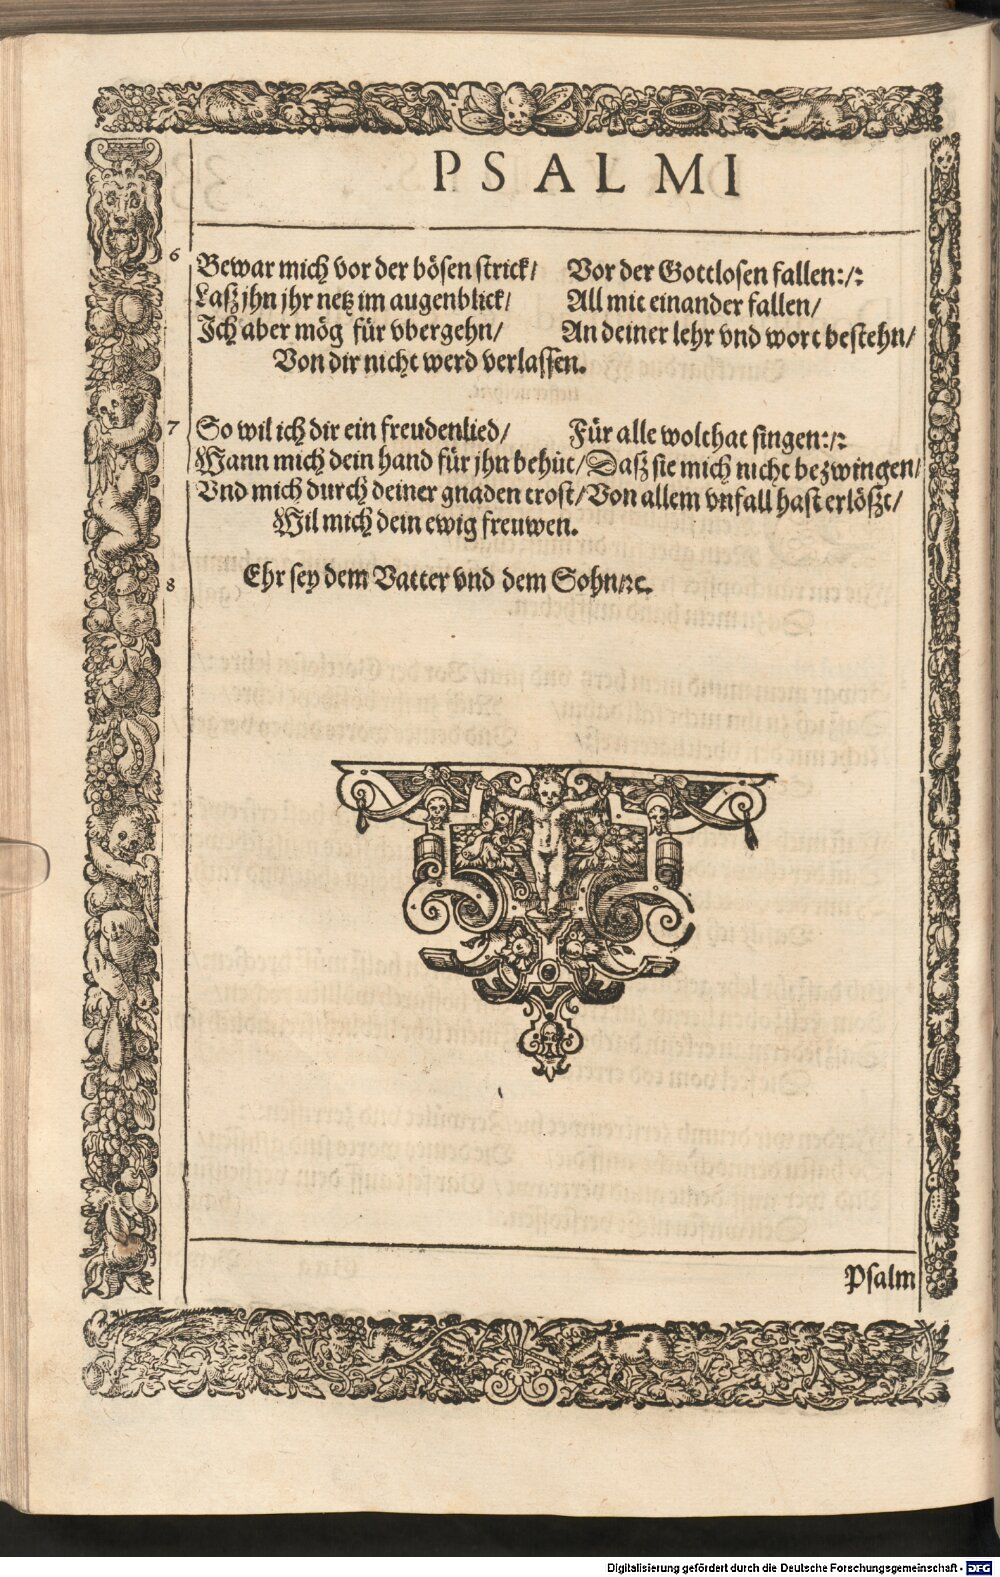 PSALMI
6 Bewar mich vor der bösen strick/ Vor der Gottlosen fallen:/:
Laſz jhn jhr netz im augenblick/ All mit einander fallen/
Ich aber mög für vbergehn/ An deiner lehr vnd wort bestehn/
Von dir nicht werd verlaſſen.
7 So wil ich dir ein freudenlied/ Für alle wolthat singen:/:
Wann mich dein hand für jhn behüt/ Daſz sie mich nicht bezwingen/
Vnd mich durch deiner gnaden trost/ Von allem vnfall hast erlöſzt/
Wil mich dein ewig freuwen.
8 Ehr sey dem Vatter vnd dem Sohn/ꝛc.
Psalm
Digitalisierung gefördert durch die Deutsche Forschungsgemeinschaft - DFG